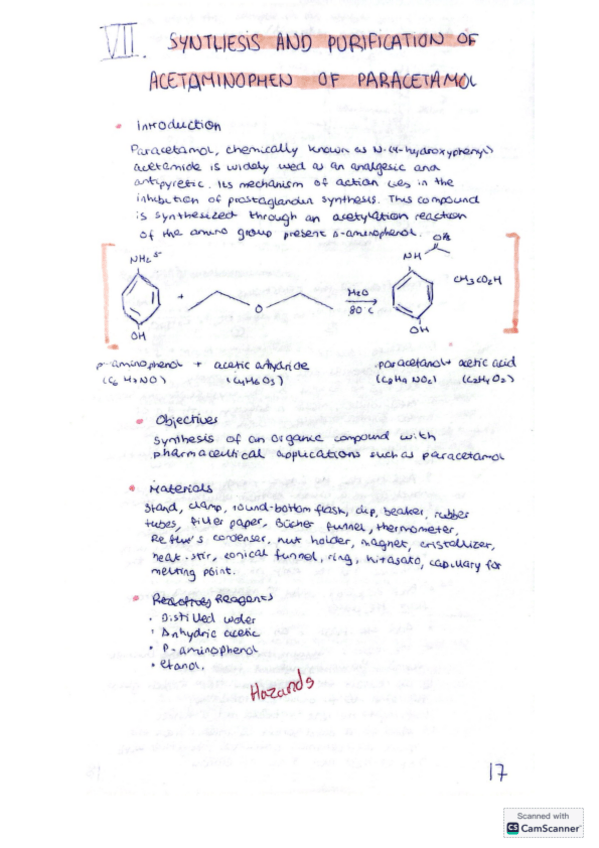 VII. SYNTHESIS AND PURIFICATION OF
ACETAMINOPHEN OF PARACETAMOL
• Introduction
Paracetamol, chemically known as N-(4-hydroxyphenyl)
acetamide is widely used as an analgesic and
antipyretic. Its mechanism of action lies in the
inhibition of prostaglandin synthesis. This compound
is synthesized through an acetylation reaction
of the amino group present
NH₂
+
O
H₂O
80°C
NH
OH
CH₃CO₂H
OH
OH
p-aminophenol + acetic anhydride
paracetamol + acetic acid
(C₄H₆O₃)
• Objectives
Synthesis of an organic compound with
pharmaceutical applications such as paracetamol
• Materials
Stand, clamp, round-bottom flask, beaker, rubber
tubes, filter paper, funnel, thermometer,
Reflux's condenser, nut holder, magnet, cristallizer,
heat-stir, conical funnel, ring, kitasato, capillary for
melting point.
• Reagents
• Distilled water
• Anhydric acetic
• P-aminophenol
• Etanol.
Hazards
17
Scanned with
CS CamScanner